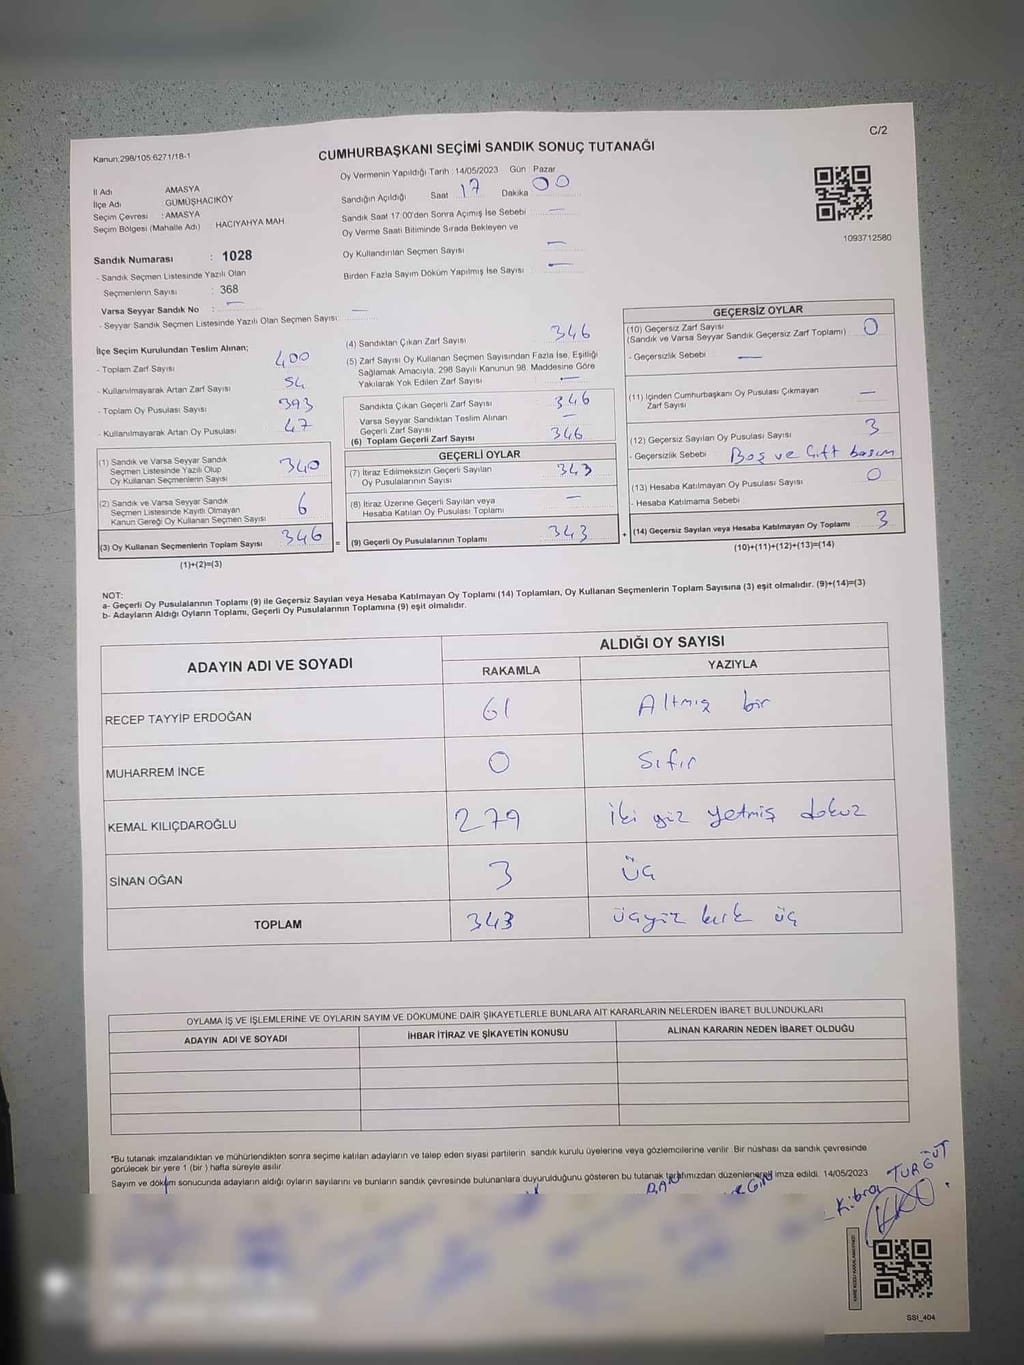 C/2
Kanun:298/105:6271/18-1
CUMHURBAŞKANI SEÇİMİ SANDIK SONUÇ TUTANAĞI
Oy Vermenin Yapıldığı Tarih : 14/05/2023 Gün Pazar
İl Adı AMASYA
İlçe Adı : GÜMÜŞHACIKÖY
Seçim Çevresi : AMASYA
Seçim Bölgesi (Mahalle Adı) HACIYAHYA MAH
Sandık Numarası : 1028
- Sandık Seçmen Listesinde Yazılı Olan
Seçmenlerin Sayısı : 368
Varsa Seyyar Sandık No : —
- Seyyar Sandık Seçmen Listesinde Yazılı Olan Seçmen Sayısı: —
Sandığın Açıldığı Saat 17 Dakika 00
Sandık Saat 17:00'den Sonra Açımış İse Sebebi —
Oy Verme Saati Bitiminde Sırada Bekleyen ve
Oy Kullandırılan Seçmen Sayısı —
Birden Fazla Sayım Döküm Yapılmış İse Sayısı —
1093712580
İlçe Seçim Kurulundan Teslim Alınan;
- Toplam Zarf Sayısı 400
- Kullanılmayarak Artan Zarf Sayısı 54
- Toplam Oy Pusulası Sayısı 393
- Kullanılmayarak Artan Oy Pusulası 47
(1) Sandık ve Varsa Seyyar Sandık
Seçmen Listesinde Yazılı Olup
Oy Kullanan Seçmenlerin Sayısı 340
(2) Sandık ve Varsa Seyyar Sandık
Seçmen Listesinde Kayıtlı Olmayan
Kanun Gereği Oy Kullanan Seçmen Sayısı 6
(3) Oy Kullanan Seçmenlerin Toplam Sayısı 346 =
(1)+(2)=(3)
(4) Sandıktan Çıkan Zarf Sayısı 346
(5) Zarf Sayısı Oy Kullanan Seçmen Sayısından Fazla İse, Eşitliği
Sağlamak Amacıyla, 298 Sayılı Kanunun 98. Maddesine Göre
Yakılarak Yok Edilen Zarf Sayısı —
Sandıkta Çıkan Geçerli Zarf Sayısı 346
Varsa Seyyar Sandıktan Teslim Alınan
Geçerli Zarf Sayısı —
(6) Toplam Geçerli Zarf Sayısı 346
GEÇERLİ OYLAR
(7) İtiraz Edilmeksizin Geçerli Sayılan
Oy Pusulalarının Sayısı 343
(8) İtiraz Üzerine Geçerli Sayılan veya
Hesaba Katılan Oy Pusulası Toplamı —
(9) Geçerli Oy Pusulalarının Toplamı 343 +
GEÇERSİZ OYLAR
(10) Geçersiz Zarf Sayısı
(Sandık ve Varsa Seyyar Sandık Geçersiz Zarf Toplamı) 0
- Geçersizlik Sebebi —
(11) İçinden Cumhurbaşkanı Oy Pusulası Çıkmayan
Zarf Sayısı —
(12) Geçersiz Sayılan Oy Pusulası Sayısı 3
- Geçersizlik Sebebi Boş ve Çift basım
(13) Hesaba Katılmayan Oy Pusulası Sayısı 0
- Hesaba Katılmama Sebebi
(14) Geçersiz Sayılan veya Hesaba Katılmayan Oy Toplamı 3
(10)+(11)+(12)+(13)=(14)
NOT:
a- Geçerli Oy Pusulalarının Toplamı (9) ile Geçersiz Sayılan veya Hesaba Katılmayan Oy Toplamı (14) Toplamları, Oy Kullanan Seçmenlerin Toplam Sayısına (3) eşit olmalıdır. (9)+(14)=(3)
b- Adayların Aldığı Oyların Toplamı, Geçerli Oy Pusulalarının Toplamına (9) eşit olmalıdır.
ADAYIN ADI VE SOYADI ALDIĞI OY SAYISI
RAKAMLA YAZIYLA
RECEP TAYYİP ERDOĞAN 61 Altmış bir
MUHARREM İNCE 0 Sıfır
KEMAL KILIÇDAROĞLU 279 İki yüz yetmiş dokuz
SİNAN OĞAN 3 üç
TOPLAM 343 üçyüz kırk üç
OYLAMA İŞ VE İŞLEMLERİNE VE OYLARIN SAYIM VE DÖKÜMÜNE DAİR ŞİKAYETLERLE BUNLARA AİT KARARLARIN NELERDEN İBARET BULUNDUKLARI
ADAYIN ADI VE SOYADI İHBAR İTİRAZ VE ŞİKAYETİN KONUSU ALINAN KARARIN NEDEN İBARET OLDUĞU
*Bu tutanak imzalandıktan ve mühürlendikten sonra seçime katılan adayların ve talep eden siyasi partilerin sandık kurulu üyelerine veya gözlemcilerine verilir. Bir nüshası da sandık çevresinde
görülecek bir yere 1 (bir ) hafta süreyle asılır.
Sayım ve döküm sonucunda adayların aldığı oyların sayılarını ve bunların sandık çevresinde bulunanlara duyurulduğunu gösteren bu tutanak tarafımızdan düzenlenerek imza edildi. 14/05/2023
Kibra TURGUT
SSI_404